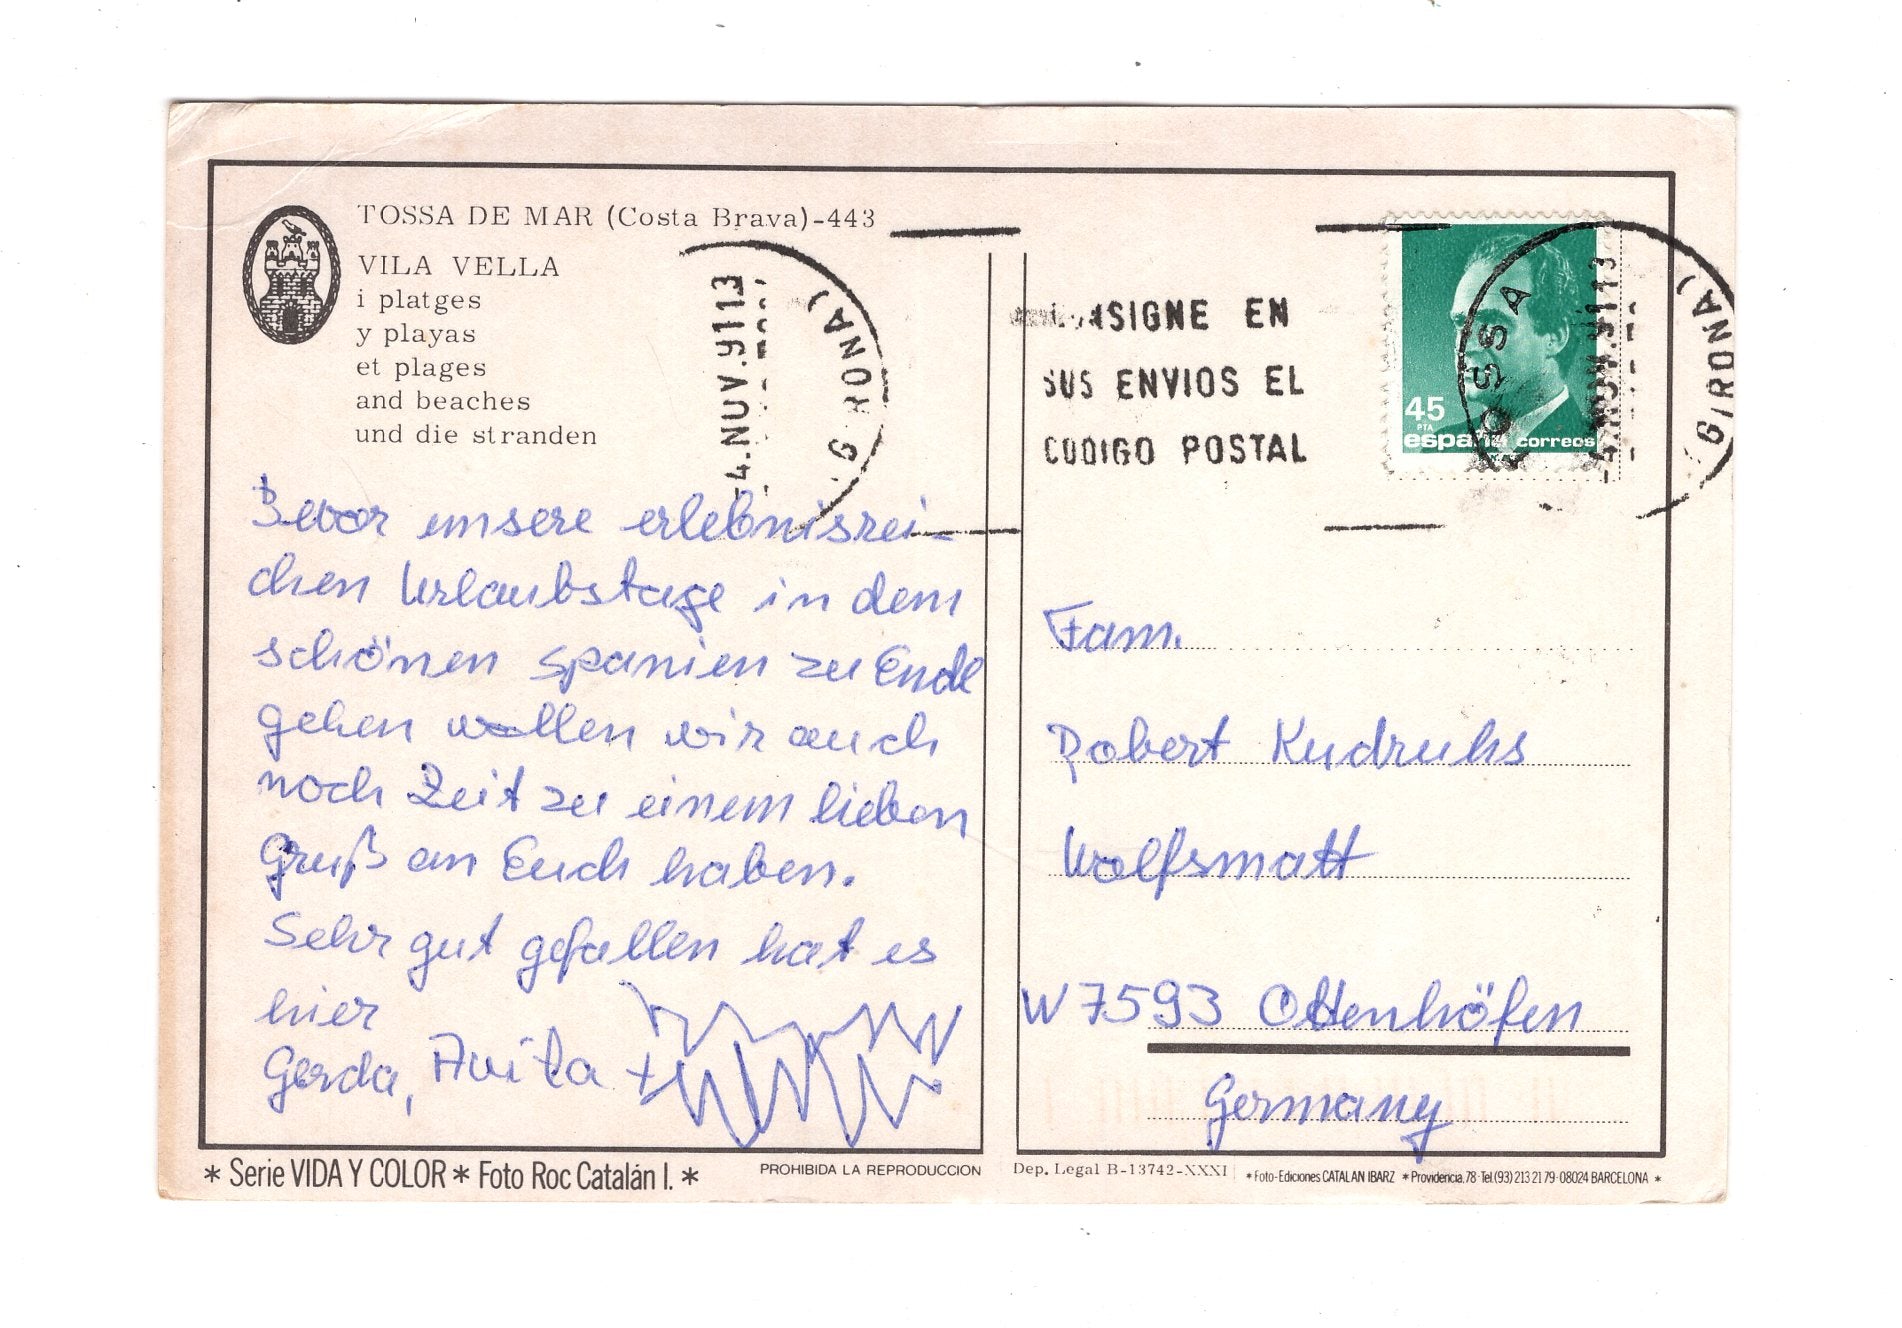 TOSSA DE MAR (Costa Brava)-443
VILA VELLA
i platges
y playas
et plages
and beaches
und die stranden
-4.NOV.9113
GIRONA)
CONSIGNE EN
SUS ENVIOS EL
CODIGO POSTAL
45
PTA
españa correos
TOSSA
-4.NOV.9113
(GIRONA)
Bevor unsere erlebnisrei-
chen Urlaubstage in dem
schönen Spanien zu Ende
gehen wollen wir auch
noch Zeit zu einem lieben
Gruß an Euch haben.
Sehr gut gefallen hat es
hier
Gerda, Anita +
Fam.
Robert Kudruhs
Wolfsmatt
W 7593 Ottenhöfen
Germany
* Serie VIDA Y COLOR * Foto Roc Catalán I. *
PROHIBIDA LA REPRODUCCION
Dep. Legal B-13742-XXXI
* Foto-Ediciones CATALAN IBARZ * Providencia, 78-Tel. (93) 213 21 79-08024 BARCELONA *